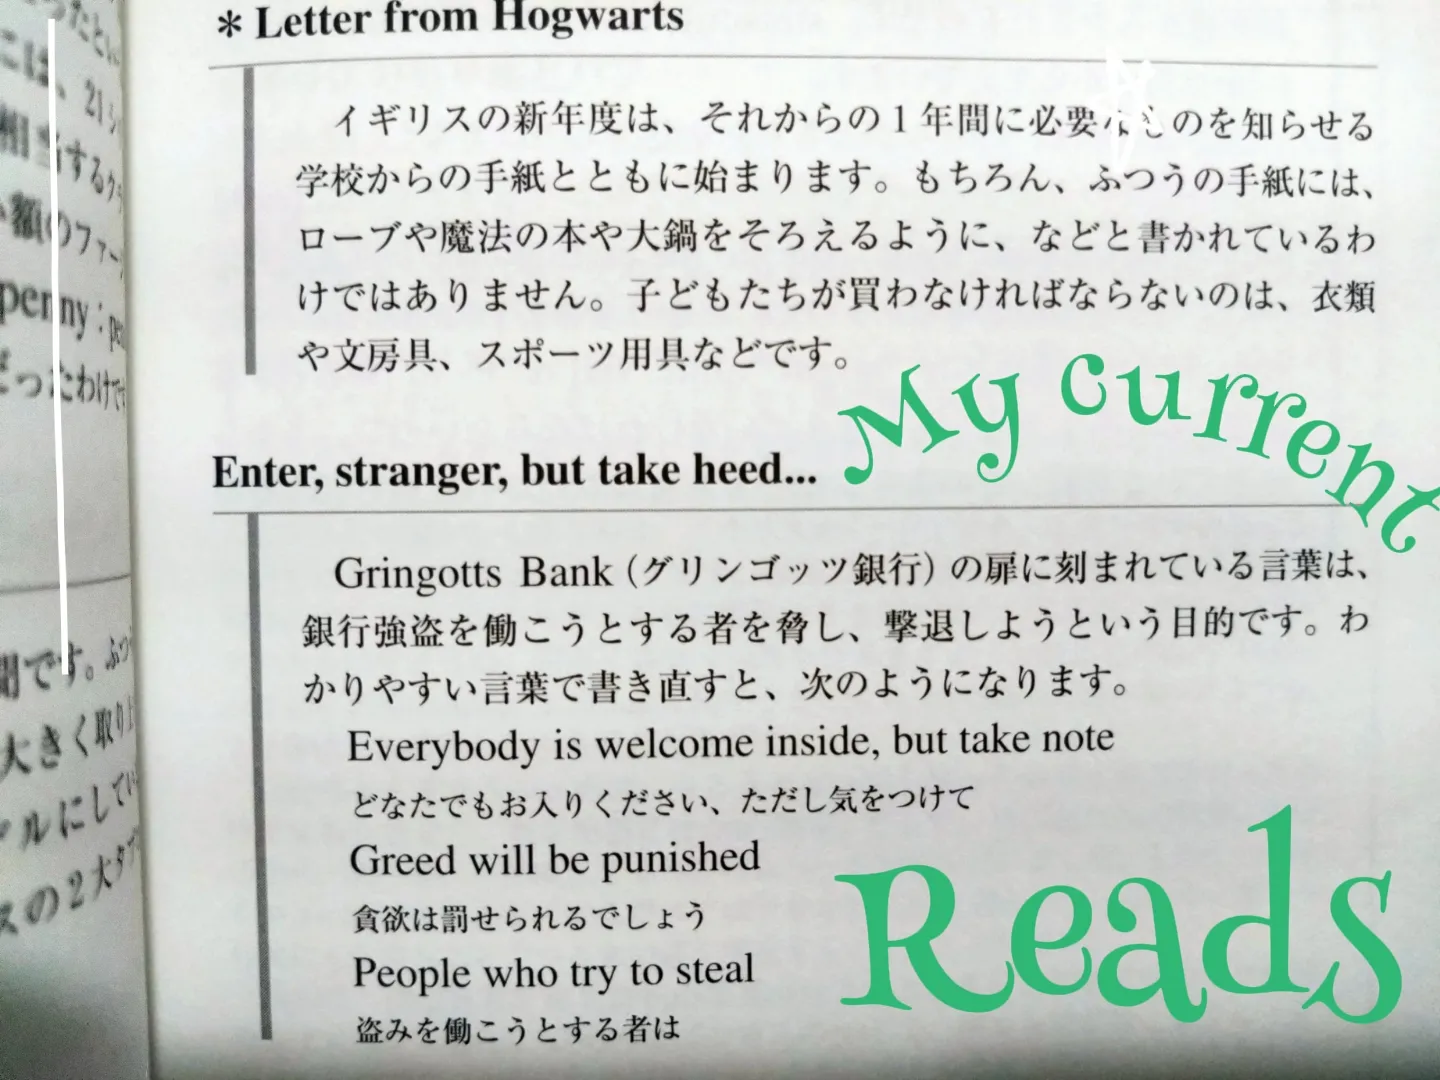 * Letter from Hogwarts
イギリスの新年度は、それからの1年間に必要なものを知らせる
学校からの手紙とともに始まります。もちろん、ふつうの手紙には、
ローブや魔法の本や大鍋をそろえるように、などと書かれているわ
けではありません。子どもたちが買わなければならないのは、衣類
や文房具、スポーツ用具などです。
My current
Enter, stranger, but take heed...
Gringotts Bank（グリンゴッツ銀行）の扉に刻まれている言葉は、
銀行強盗を働こうとする者を脅し、撃退しようという目的です。わ
かりやすい言葉で書き直すと、次のようになります。
Everybody is welcome inside, but take note
どなたでもお入りください、ただし気をつけて
Greed will be punished
貪欲は罰せられるでしょう
Reads
People who try to steal
盗みを働こうとする者は
には、21シ
相当するク
額のファー
penny : pe
だったわけで
聞です。ふつ
大きく取り上
ルにしてい
スの2大タブ